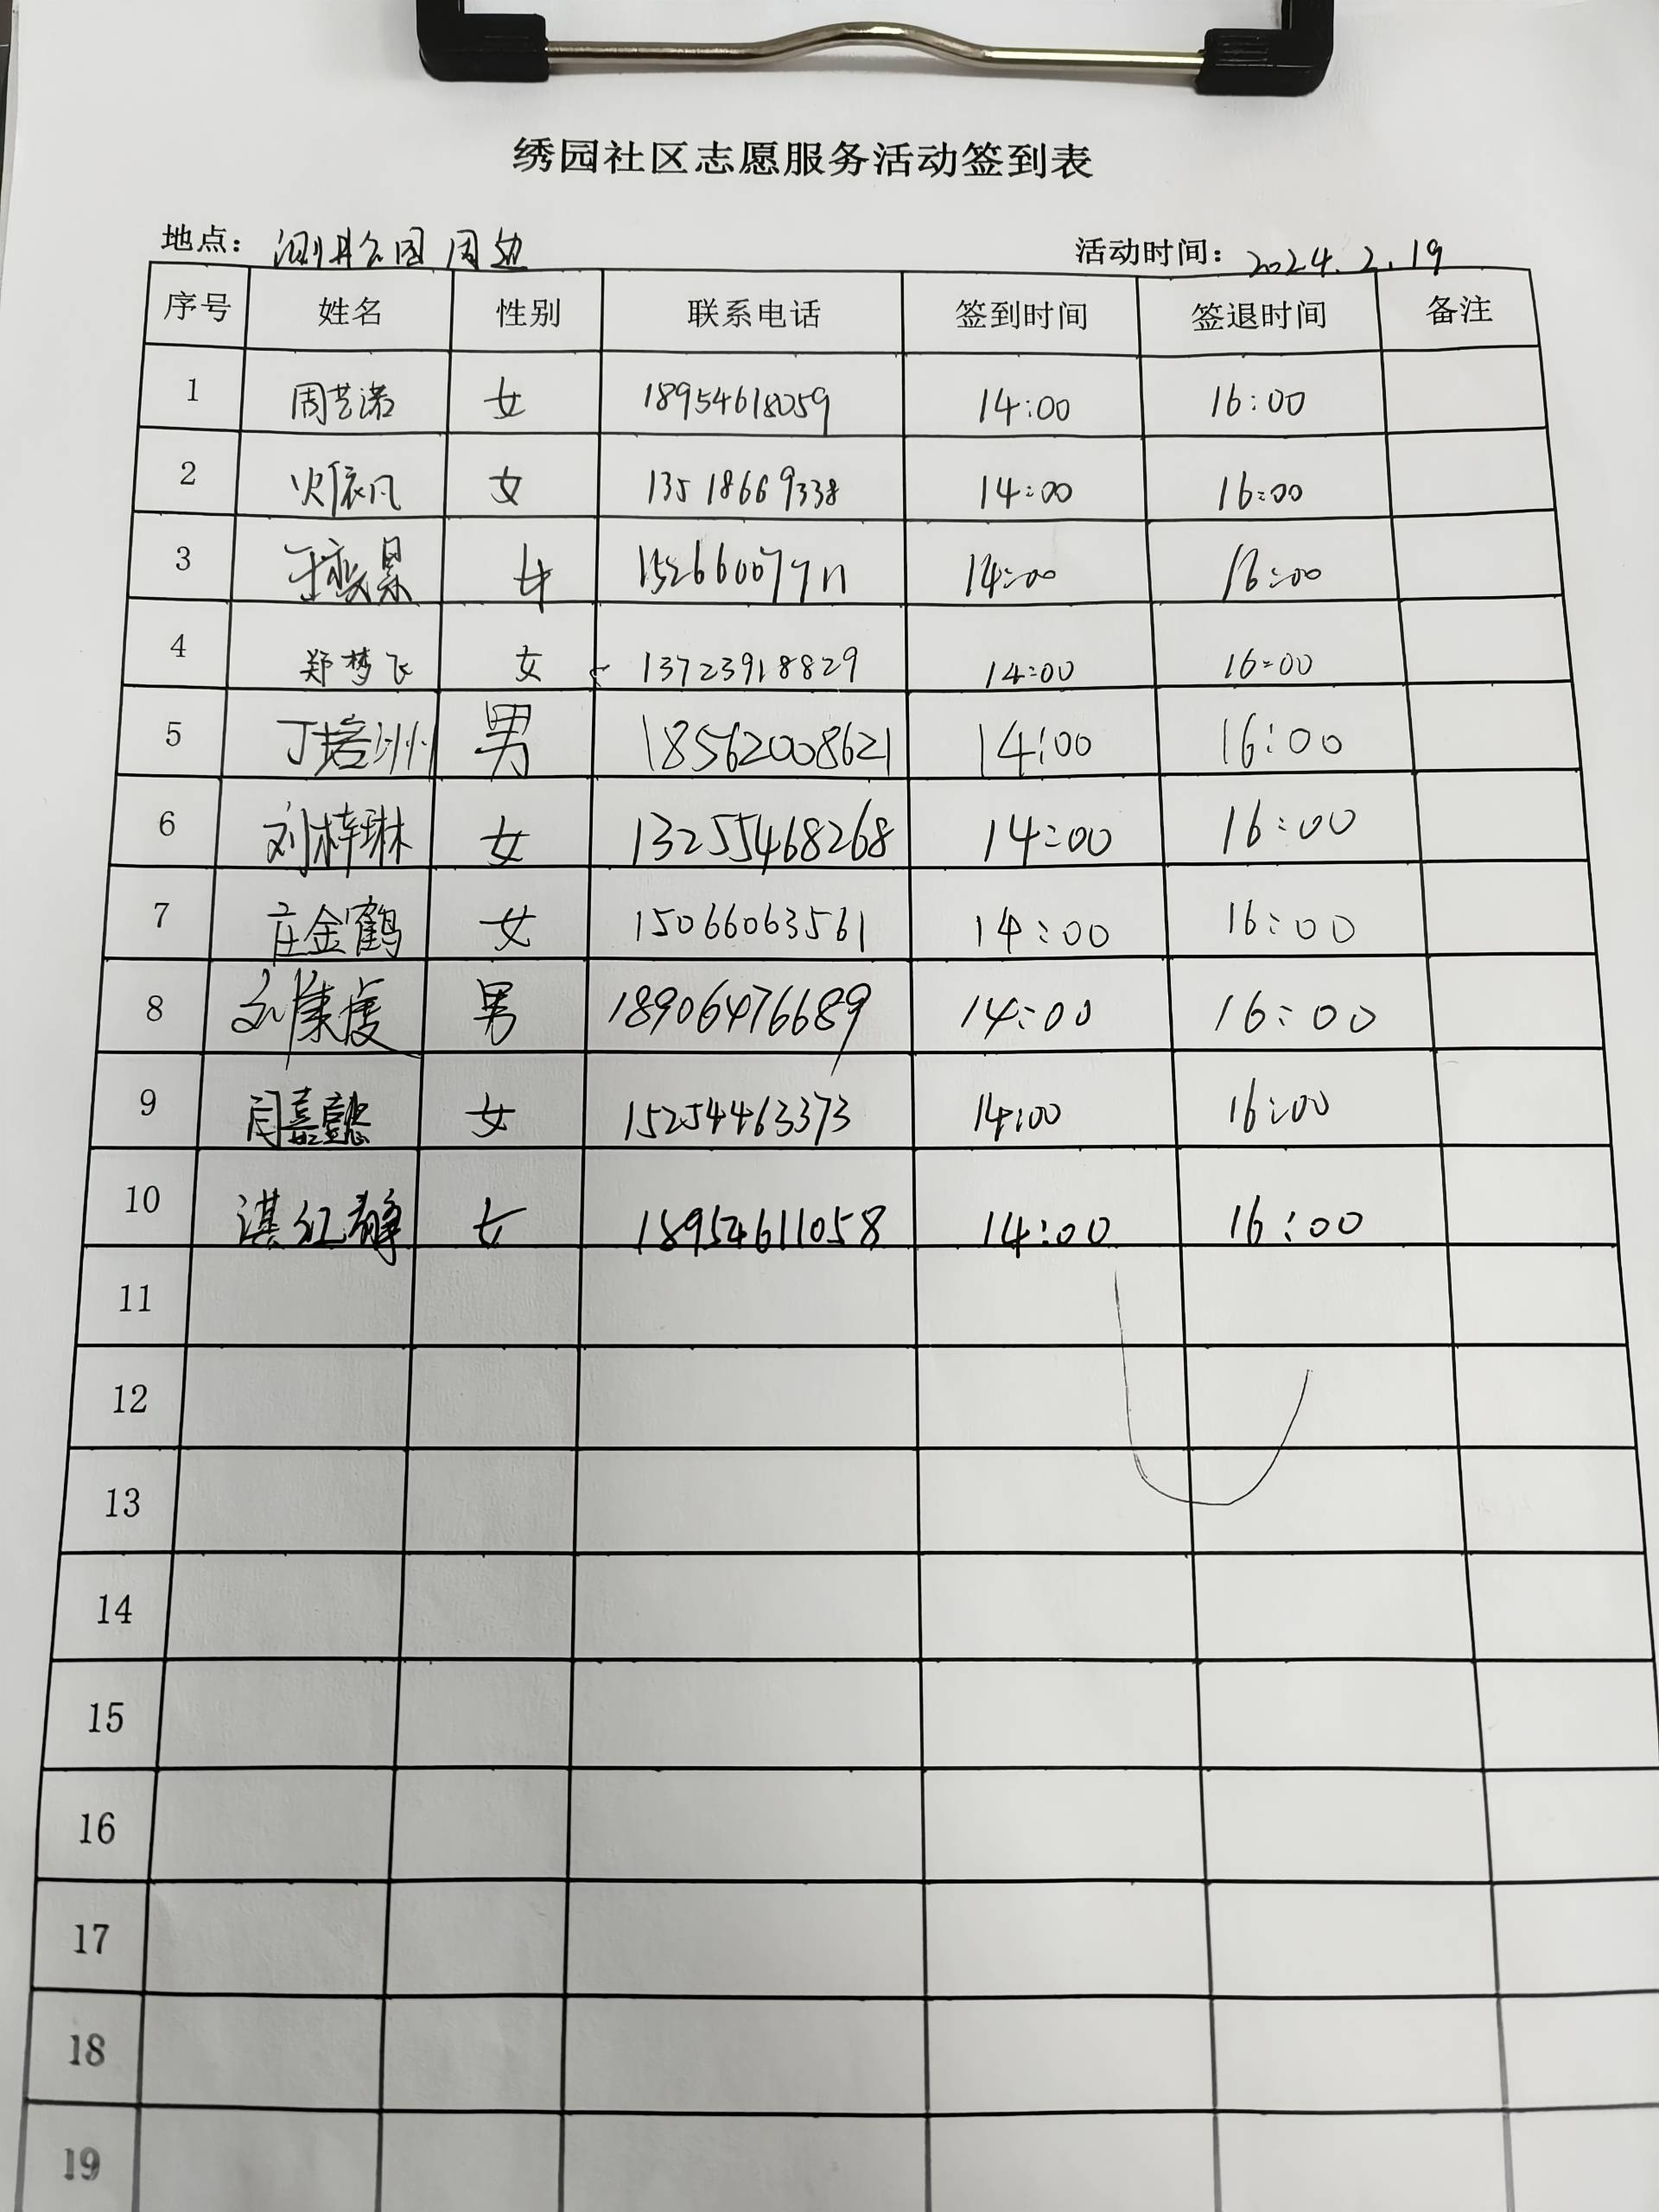 绣园社区志愿服务活动签到表
地点: 测井公园周边 活动时间: 2024.2.19
序号 姓名 性别 联系电话 签到时间 签退时间 备注
1 周艺诺 女 18954618059 14:00 16:00
2 女 13518669338 14:00 16:00
3 女 14:00 16:00
4 郑梦飞 女 13723918829 14:00 16:00
5 丁培洲 男 18562008621 14:00 16:00
6 刘梓琳 女 13255468268 14:00 16:00
7 庄金鹤 女 15066063561 14:00 16:00
8 男 18906476689 14:00 16:00
9 闫嘉懿 女 15254463373 14:00 16:00
10 女 18954611058 14:00 16:00
11
12
13
14
15
16
17
18
19